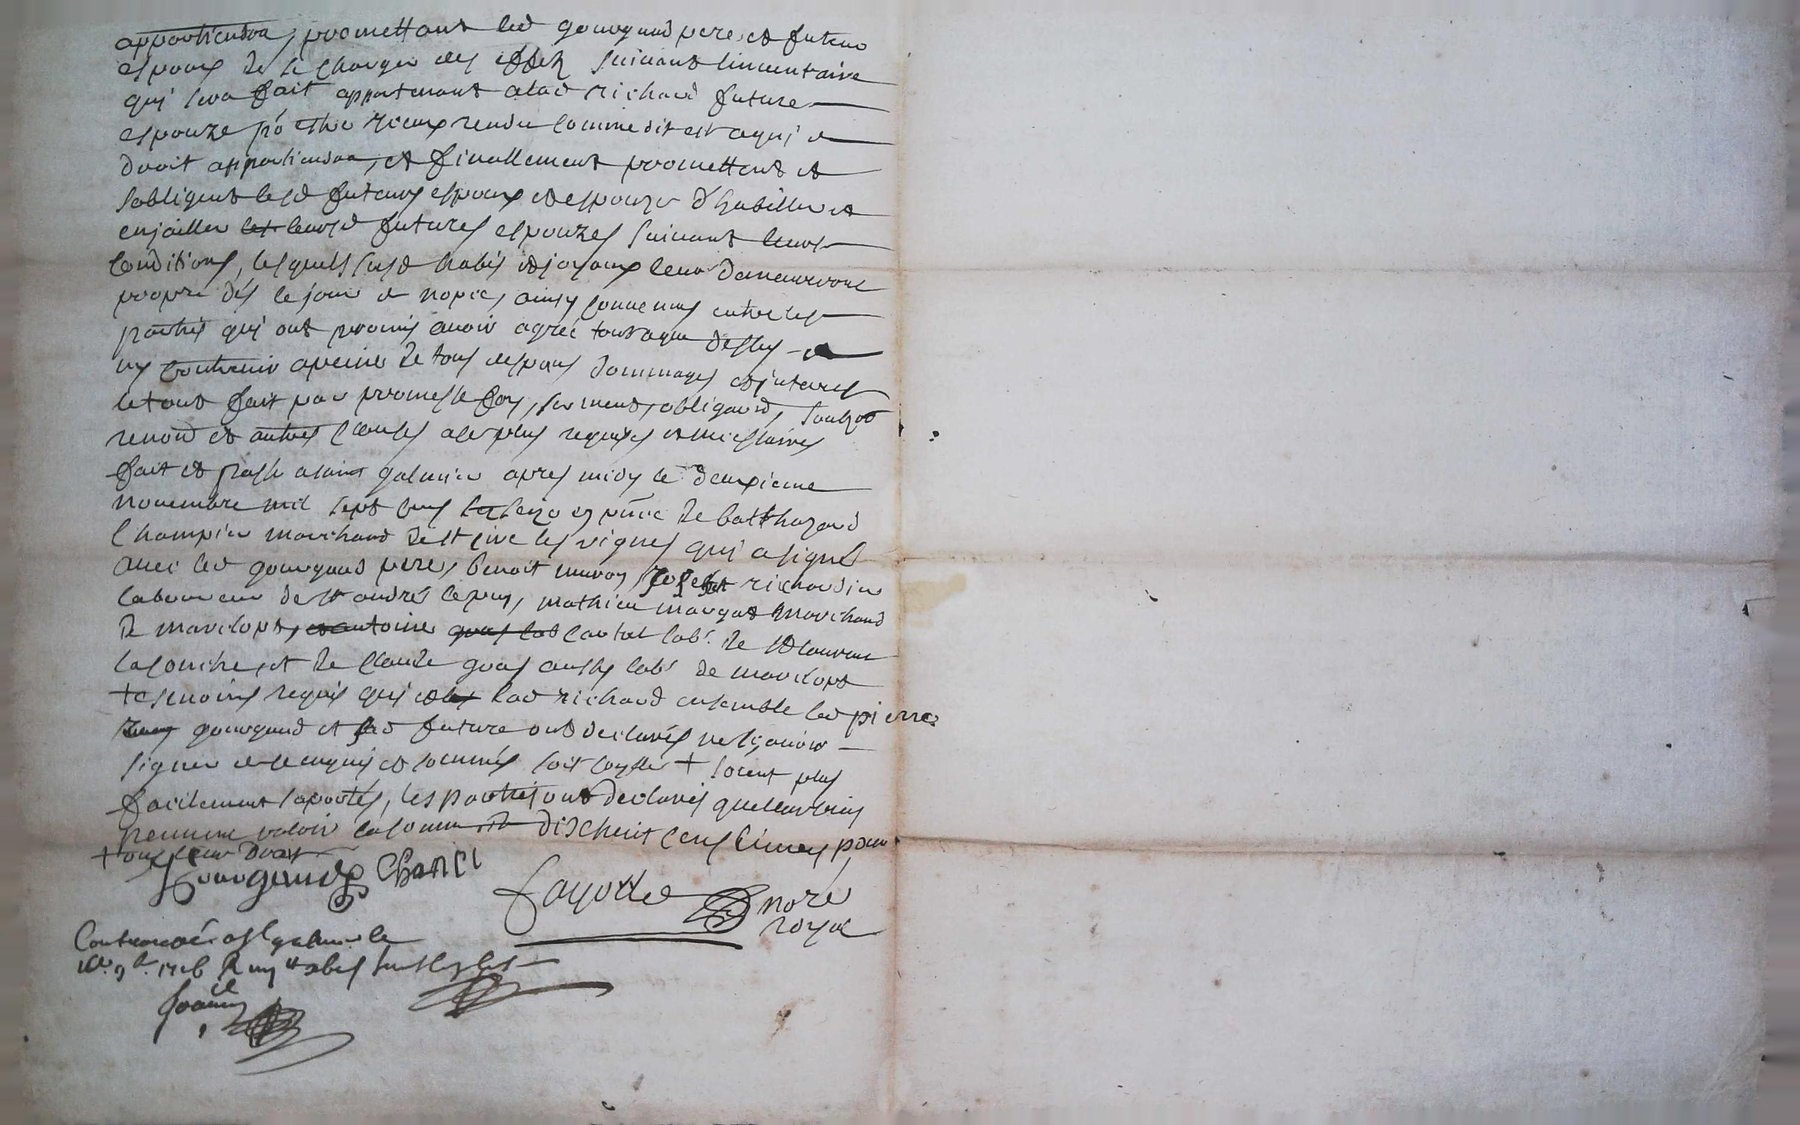 appartiendra, promettant led gourgaud pere et futeur
espoux de se charger des effetz suivant linventaire
qui sera fait appartenant a lad richard future
espouze pō estre iceux rendu comme dit est a qui de
droit appartiendra, et finallement promettent et
sobligent lesd futeurs espoux et espouzes d'habiller et
enjoailler leursd futures espouzes suivant leurs
conditions, lesquels susd habis et joyaux leur demeureront
propre dés le jour de nopce, ainsy convenus entre les
parties qui ont promis avoir agréé tout a que dessus
ny contrevenir a peine de tous despens dommages et interest
le tout fait par promesse foy, serment, obligaōn,
renōn et autres clauses a ce plus requises et necessaires
fait et passé a saint galmier apres midy le deuxieme
novembre mil sept cens seize en pñce de balthazard
Champier marchand de st
les vignes qui a signé
avec led gourgaud pere, benoit
richardier
laboureur de st andré le puy, mathieu marchand
de marclopt, antoine lab.r de st laurent
la conche, et de claude goas aussy lab.r de marclopt
tesmoins requis qui et lad richard ensemble led pierre
gourgaud et sad future ont declarés ne sçavoir
signer de ce enquis et sommés soit
+ soient plus
facilement raportés, les parties ont declarés que leur biens
peuvent valoir la somme de dischuit cens livres pour
tout leur droit
Gourgaud
Chanci
fayolle
nore
royal
Controollé a st galmier le
9.b. 1716 R